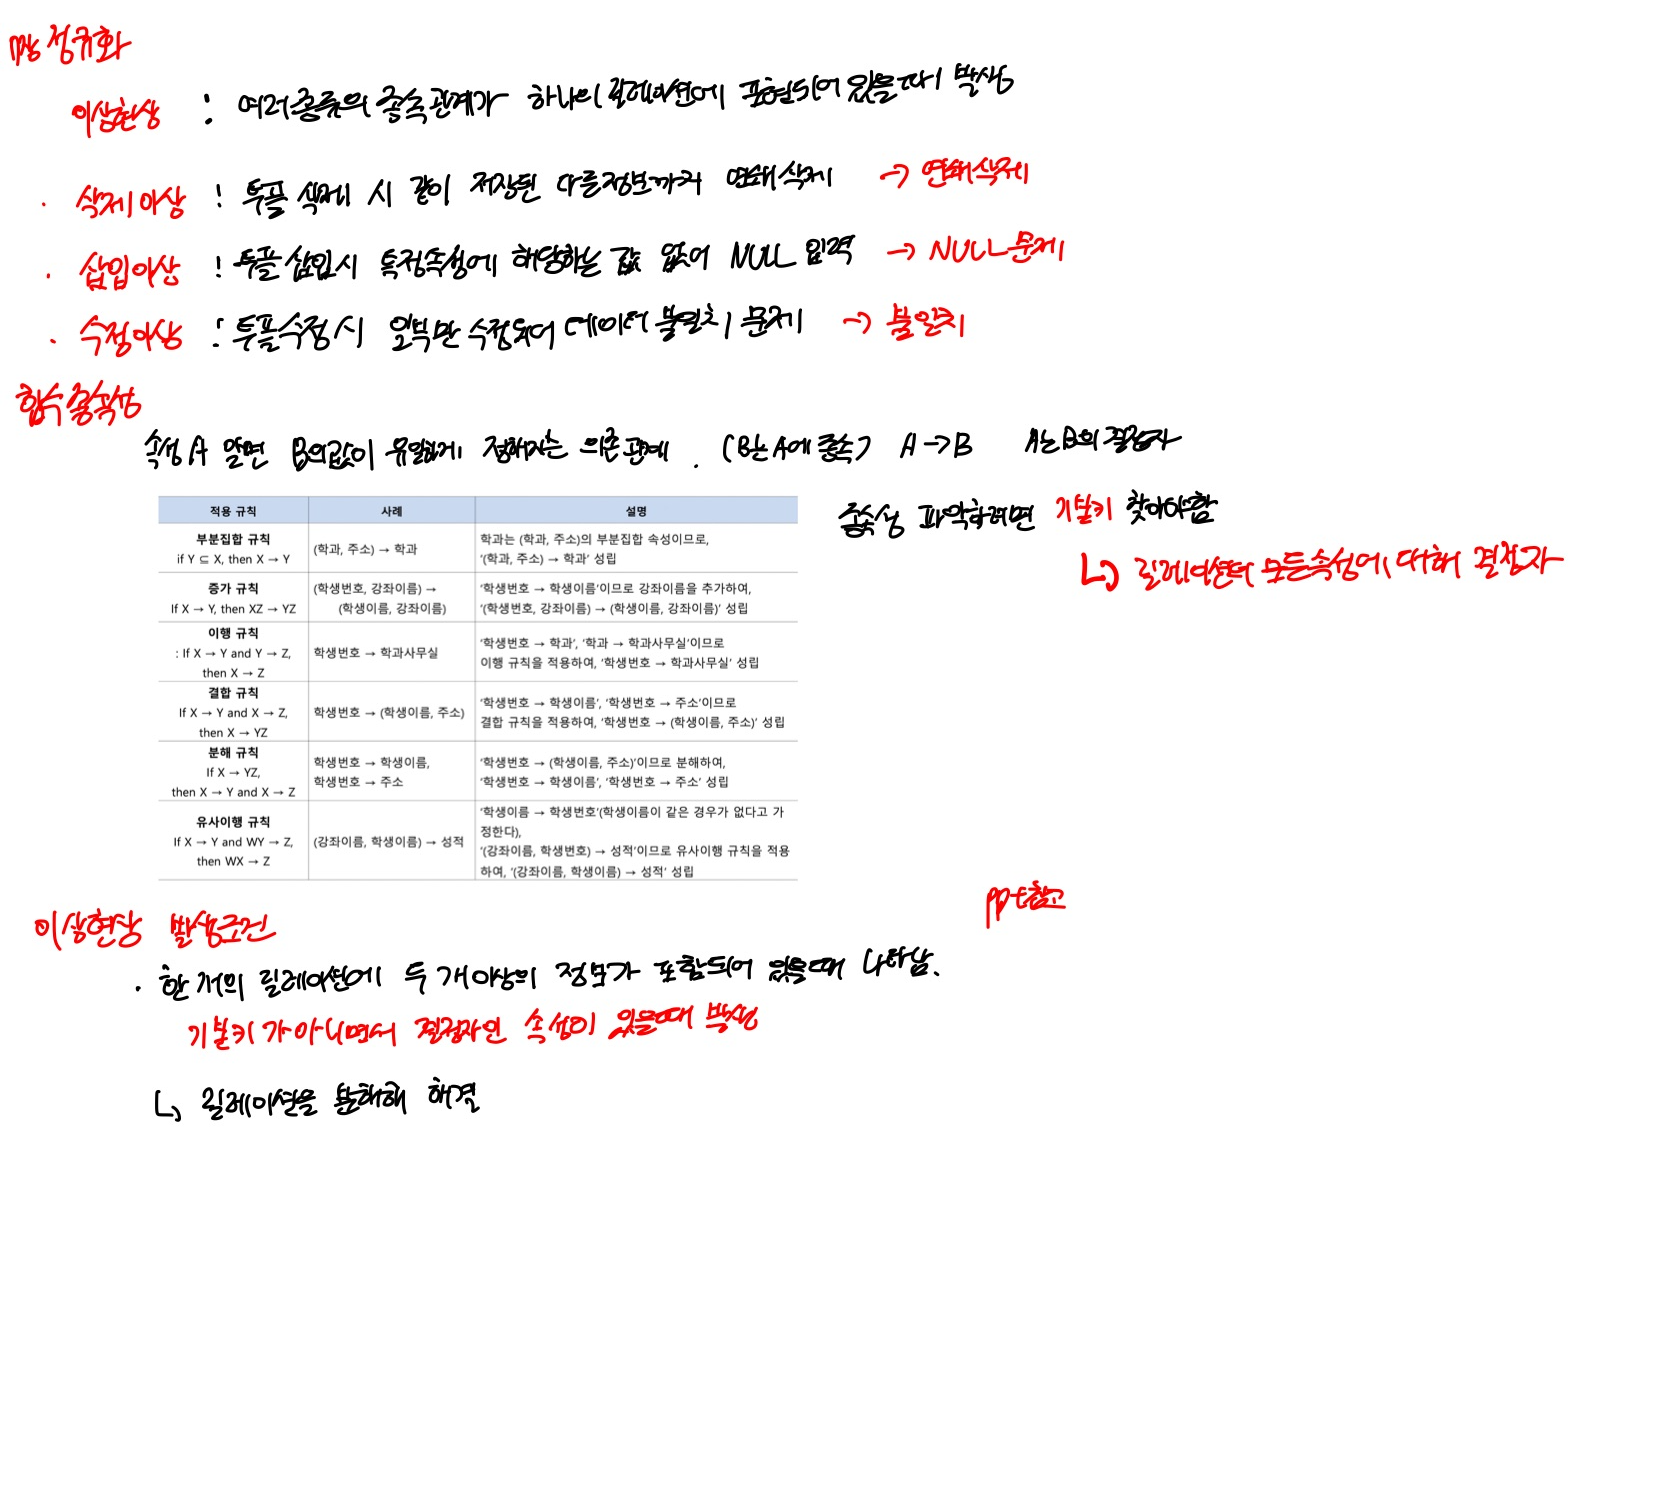 7장 정규화
이상현상 : 여러종류의 종속관계가 하나의 릴레이션에 표현되어 있을때 발생
· 삭제이상 : 투플 삭제 시 같이 저장된 다른정보까지 연쇄삭제 → 연쇄삭제
· 삽입이상 : 투플 삽입시 특정속성에 해당하는 값 없어 NULL 입력 → NULL 문제
· 수정이상 : 투플수정 시 일부만 수정되어 데이터 불일치 문제 → 불일치
함수종속성
속성 A 알면 B의값이 유일하게 정해지는 의존관계. (B는 A에 종속) A→B A는 B의 결정자
종속성 파악하려면 기본키 찾아야함
↳ 릴레이션의 모든속성에 대해 결정자
적용 규칙 사례 설명
부분집합 규칙
if Y ⊆ X, then X → Y
(학과, 주소) → 학과
학과는 (학과, 주소)의 부분집합 속성이므로,
‘(학과, 주소) → 학과’ 성립
증가 규칙
If X → Y, then XZ → YZ
(학생번호, 강좌이름) →
(학생이름, 강좌이름)
‘학생번호 → 학생이름’이므로 강좌이름을 추가하여,
‘(학생번호, 강좌이름) → (학생이름, 강좌이름)’ 성립
이행 규칙
: If X → Y and Y → Z,
then X → Z
학생번호 → 학과사무실
‘학생번호 → 학과’, ‘학과 → 학과사무실’이므로
이행 규칙을 적용하여, ‘학생번호 → 학과사무실’ 성립
결합 규칙
If X → Y and X → Z,
then X → YZ
학생번호 → (학생이름, 주소)
‘학생번호 → 학생이름’, ‘학생번호 → 주소’이므로
결합 규칙을 적용하여, ‘학생번호 → (학생이름, 주소)’ 성립
분해 규칙
If X → YZ,
then X → Y and X → Z
학생번호 → 학생이름,
학생번호 → 주소
‘학생번호 → (학생이름, 주소)’이므로 분해하여,
‘학생번호 → 학생이름’, ‘학생번호 → 주소’ 성립
유사이행 규칙
If X → Y and WY → Z,
then WX → Z
(강좌이름, 학생이름) → 성적
‘학생이름 → 학생번호’(학생이름이 같은 경우가 없다고 가
정한다),
‘(강좌이름, 학생번호) → 성적’이므로 유사이행 규칙을 적용
하여, ‘(강좌이름, 학생이름) → 성적’ 성립
ppt참고
이상현상 발생조건
· 한 개의 릴레이션에 두 개이상의 정보가 포함되어 있을때 나타남.
기본키가아니면서 결정자인 속성이 있을때 발생
↳ 릴레이션을 분해해 해결